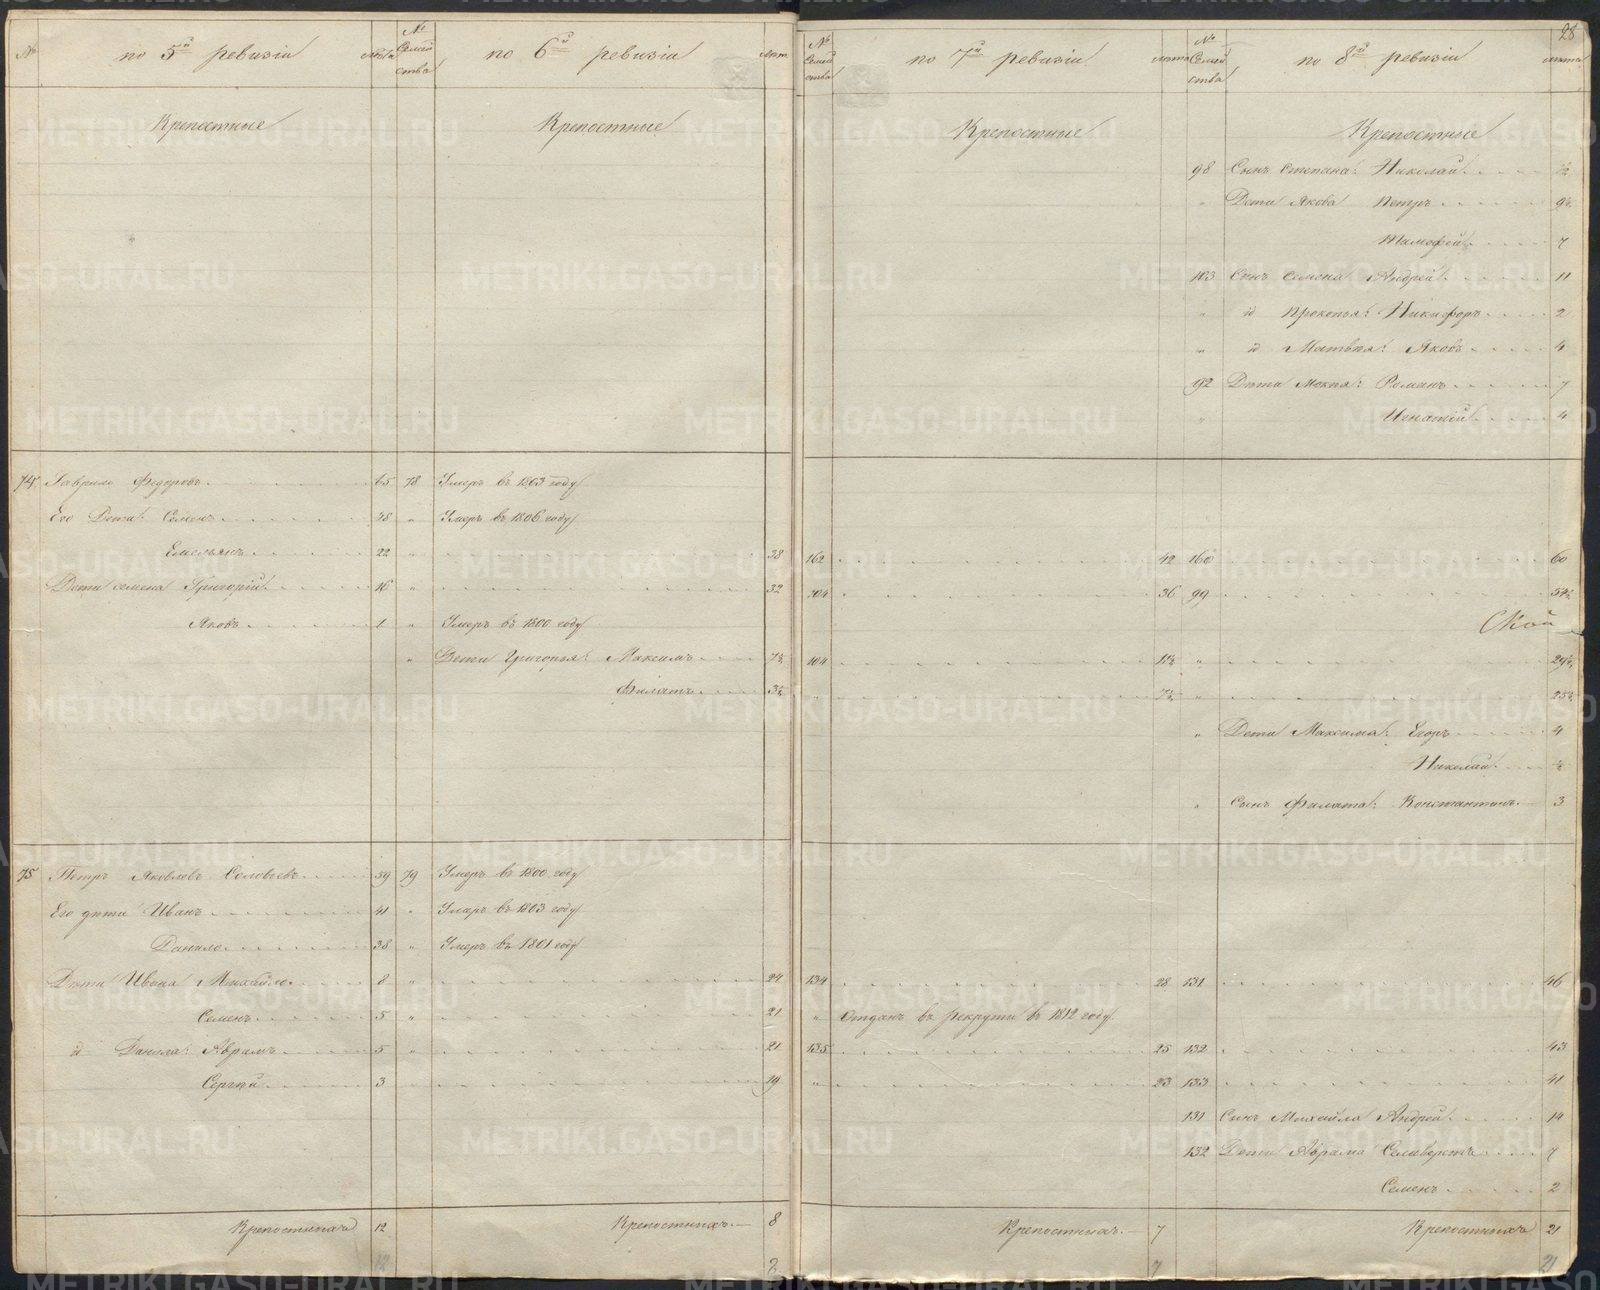 28
№ по 5й ревизіи лѣта № Семейства по 6й ревизіи лѣта № Семейства по 7й ревизіи лѣта № Семейства по 8й ревизіи лѣта
Крепостные Крепостные Крепостные Крепостные
98 Сынъ Степана: Николай ½
" Дѣти Якова Петръ 9½
Тимофей 7
103 Сынъ Семена Андрей 11
" й Прокопья: Никифоръ 2
" й Матвѣя: Яковъ 4
92 Дѣти Мокѣя: Романъ 7
" Игнатій 4
74 Гаврило Федоровъ 65 78 Умеръ въ 1803 году
Его Дети: Семенъ 48 " Умеръ въ 1806 году
Емельянъ 22 " 38 162 42 160 60
Дѣти Семена Григорій 16 " 32 104 36 99 54½
Яковъ 1 " Умеръ въ 1800 году
" Дети Григорья: Максимъ 7½ 104 11½ " 29½
Филатъ 3½ " 7½ " 25½
" Дети Максима: Егоръ 4
Николай ½
" Сынъ Филата: Константинъ 3
75 Петръ Яковлевъ Соловьевъ 59 79 Умеръ въ 1800 году
Его дѣти Иванъ 41 " Умеръ въ 1803 году
Данило 38 " Умеръ въ 1801 году
Дѣти Ивана Михайло 8 " 24 134 28 131 46
Семенъ 5 " 21 " Отданъ въ рекруты въ 1812 году
й Данила: Аврамъ 5 " 21 135 25 132 43
Сергѣй 3 19 " 23 133 41
131 Сынъ Михайла Андрей 14
132 Дети Аврама Селиверстъ 7
Семенъ 2
Крепостныхъ 12 Крепостныхъ 8 Крепостныхъ 7 Крепостныхъ 21
12 7 21
METRIKI.GASO-URAL.RU